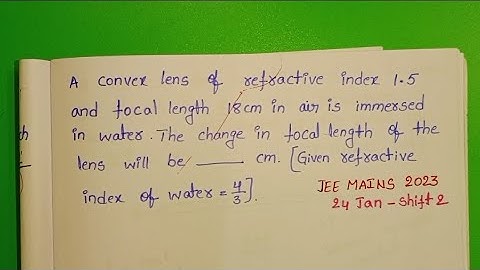 A convex lens of refractive index 1.5
and focal length 18cm in air is immersed
in water. The change in focal length of the
lens will be ____ cm. [Given refractive
index of water = 4/3].
JEE MAINS 2023
24 Jan - Shift 2